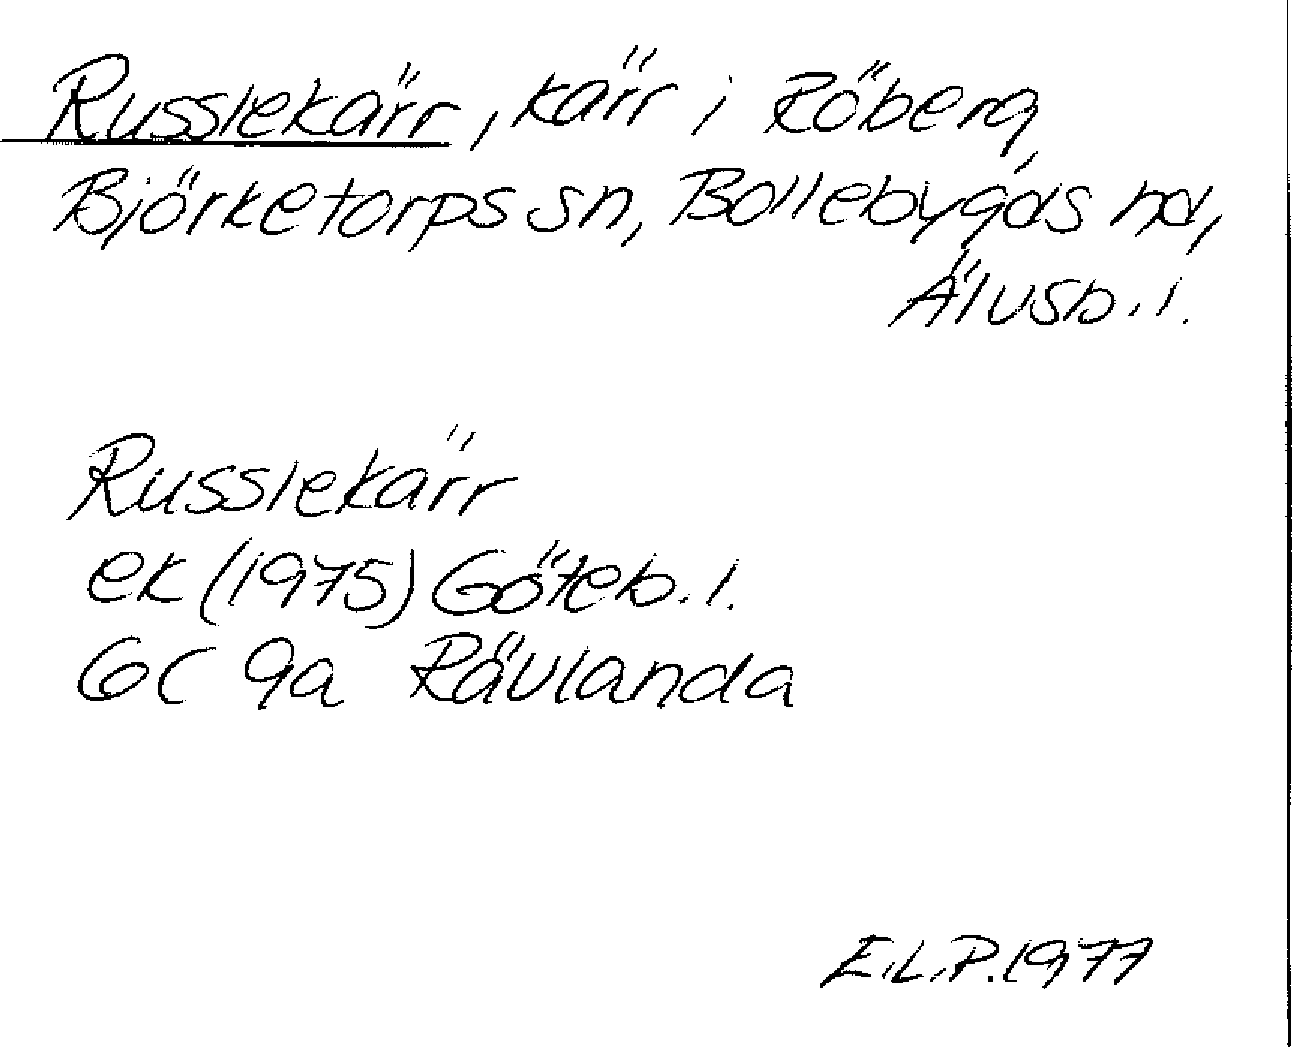 Russlekärr, kärr i Röberg,
Björketorps sn, Bollebygds hd,
Älvsb. l.
Russlekärr
ek (1975) Göteb. l.
6C 9a Rävlanda
E.L.P. 1977